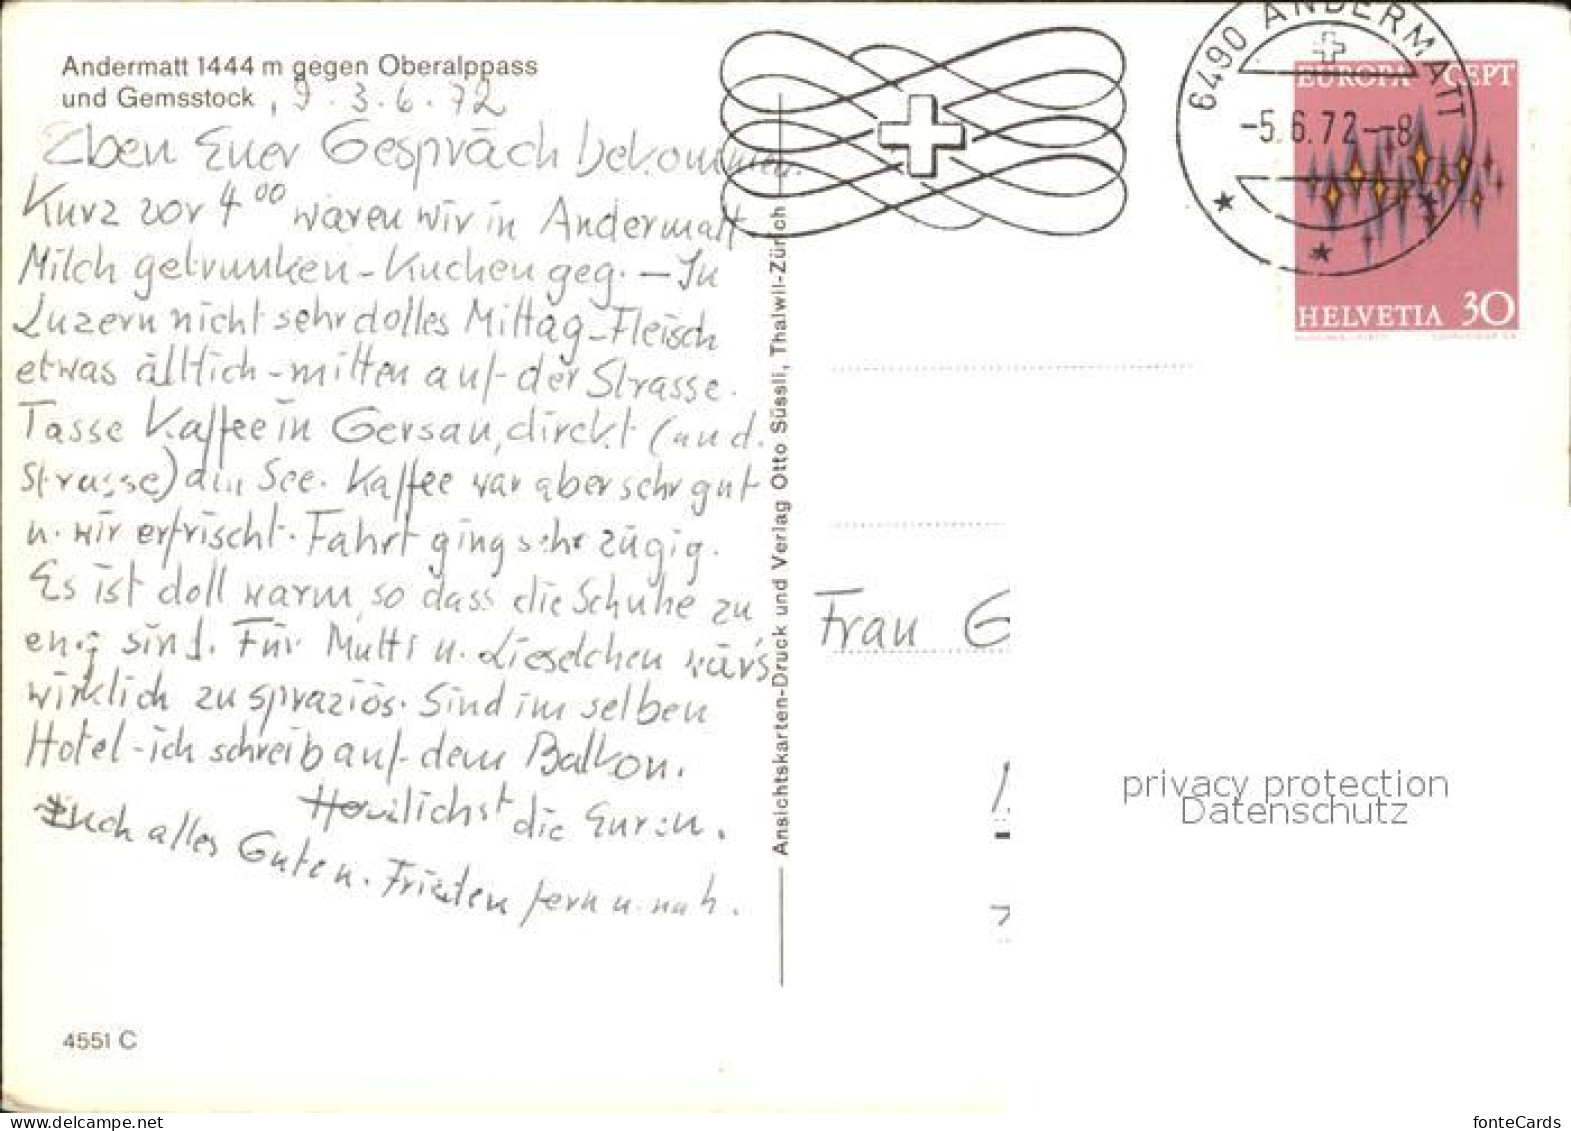 Andermatt 1444 m gegen Oberalppass
und Gemsstock, 3.6.72
Eben Euer Gespräch bekommen.
Kurz vor 4⁰⁰ waren wir in Andermatt
Milch getrunken - Kuchen geg. — In
Luzern nicht sehr dolles Mittag - Fleisch
etwas ältlich - mitten auf der Strasse.
Tasse Kaffee in Gersau, direkt (an d.
Strasse) am See. Kaffee war aber sehr gut
u. wir erfrischt. Fahrt ging sehr zügig.
Es ist doll warm, so dass die Schuhe zu
eng sind. Für Mutti u. Lieselchen wär's
wirklich zu spraziös. Sind im selben
Hotel - ich schreib auf dem Balkon.
Herzlichst die Euren.
Euch alles Guten. Frieden fern u. nah.
4551 C
Ansichtskarten-Druck und Verlag Otto Süssli, Thalwil-Zürich
6490 ANDERMATT
-5.6.72--8
EUROPA CEPT
HELVETIA 30
Frau G
privacy protection
Datenschutz
fonteCards